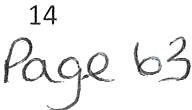 14
Page 63